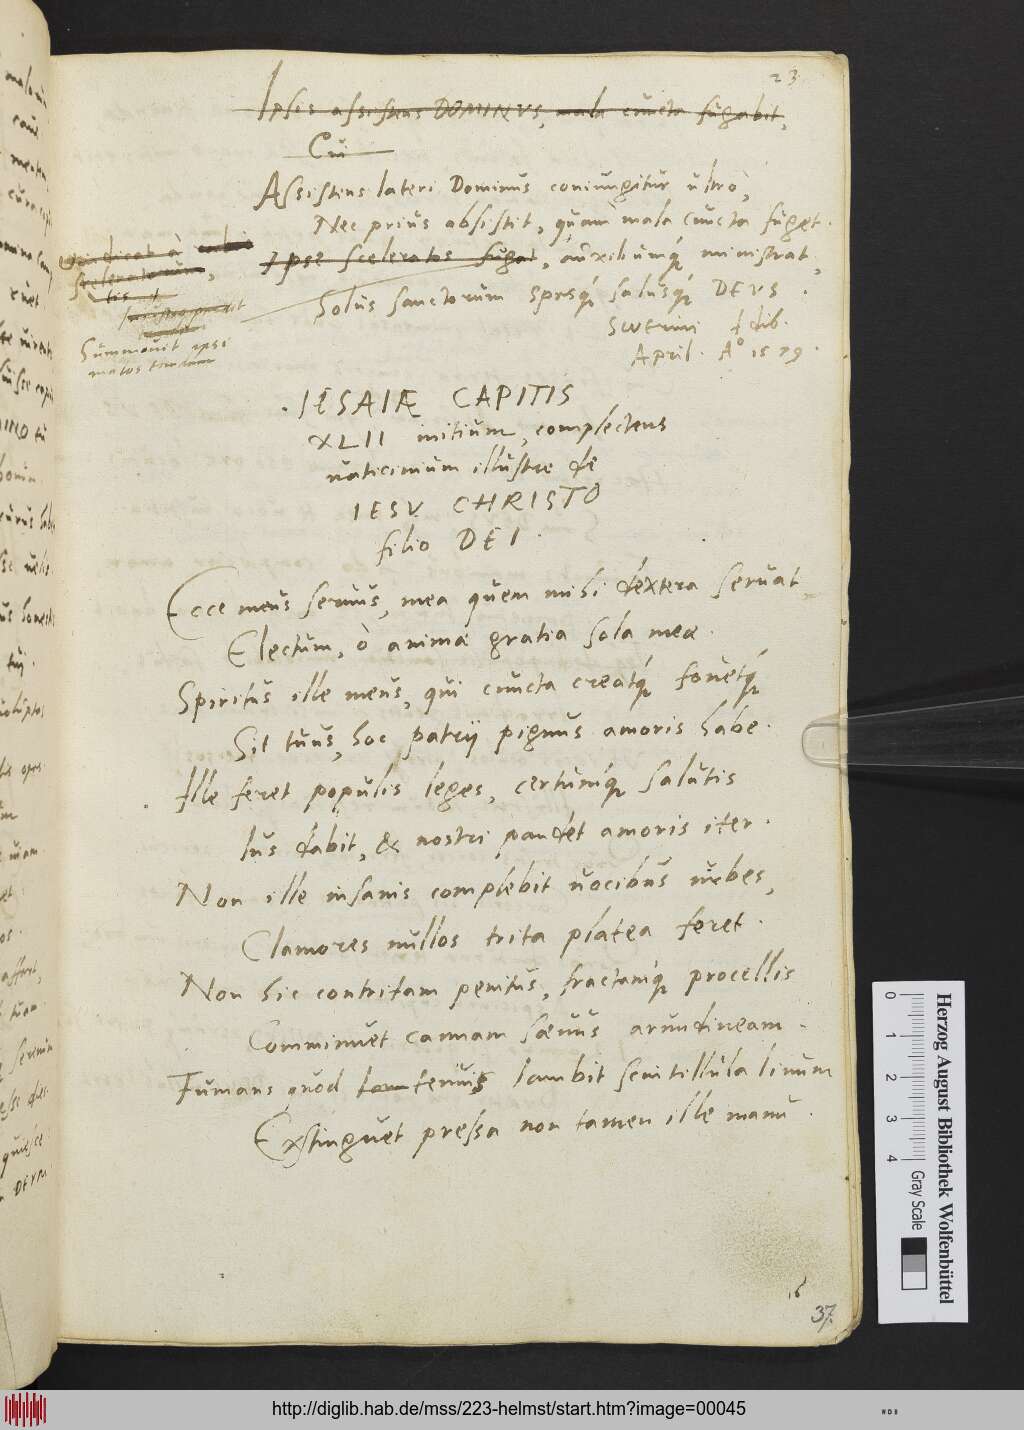 23
Ipsis assistens DOMINVS, mala cuncta fugabit,
Cui
Assistens lateri Dominus coniungitur ultrò,
Nec prius absistit, quàm mala cuncta fuget.
Ipse sceleratos fugat, auxiliumq́ ministrat,
Solus sanctorum spesq́ salusq́ DEUS.
Swerini
April. A° 1579.
sceleratorum,
Summouit ipse
malos
IESAIÆ CAPITIS
XLII initium, complectens
uaticinium illustre de
IESV CHRISTO
filio DEI.
Ecce meus seruus, mea quem mihi dextera seruat,
Electum, ò animæ gratia sola meæ.
Spiritus ille meus, qui cuncta creatq́ fouetq́
Sit tuus, hoc patrij pignus amoris habe.
Ille feret populis leges, certumq́ salutis
Ius dabit, & nostri pandet amoris iter.
Non ille insanis complebit uocibus urbes,
Clamores nullos trita platea feret.
Non hic contritam penitus, fractamq́ procellis
Comminuet cannam sæuus arundineam.
Fumans quod tam tenuis lambit scintillula linum
Exstinguet pressa non tamen ille manu.
37.
Herzog August Bibliothek Wolfenbüttel
0 1 2 3 4 Gray Scale
http://diglib.hab.de/mss/223-helmst/start.htm?image=00045